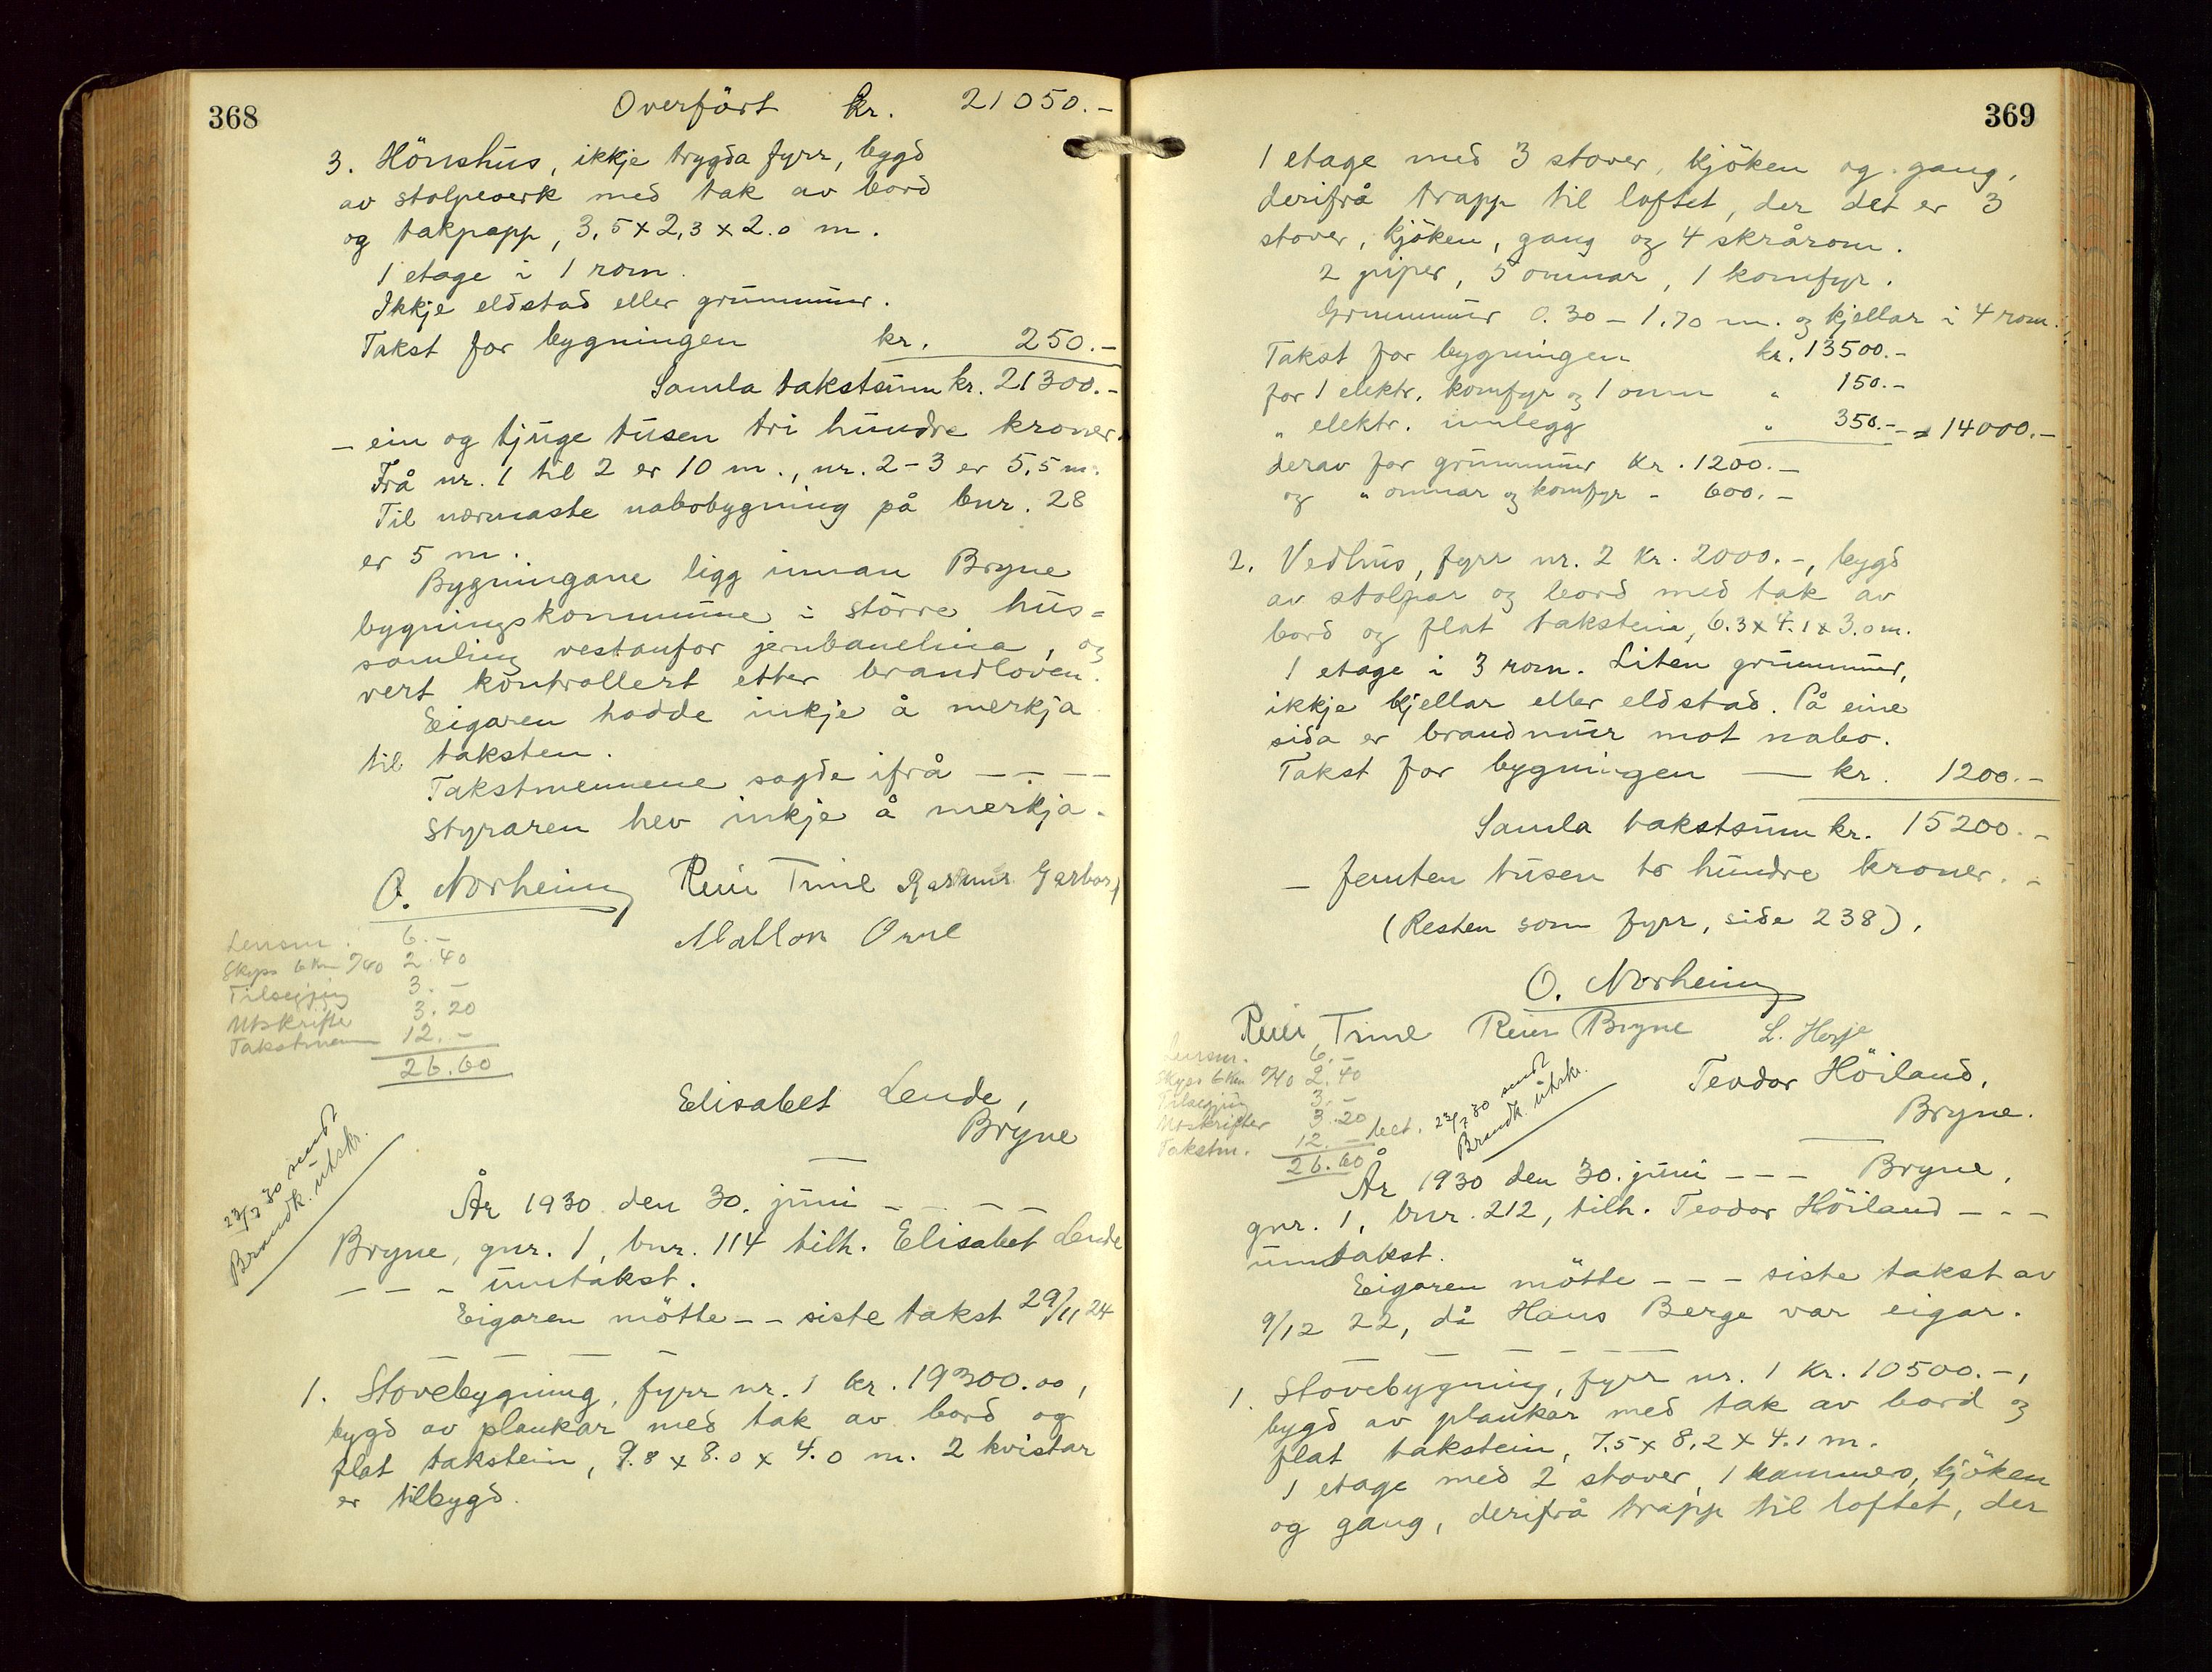 368
Overfört kr. 21050.-
3. Hönshus, ikkje trygda fyrr, bygd
av stolpeverk med tak av bord
og takpapp, 3,5 x 2,3 x 2.0 m.
1 etage i 1 rom.
Ikkje eldstad eller grunnmur.
Takst for bygningen kr. 250.-
Samla takstsum kr. 21300.-
- ein og tjuge tusen tri hundre kroner.
Frå nr. 1 til 2 er 10 m., nr. 2-3 er 5,5 m.
Til nærmaste nabobygning på bnr. 28
er 5 m.
Bygningane ligg innan Bryne
bygningskommune i större hus=
samling vestanfor jernbanelina, og
vert kontrollert etter brandloven.
Eigaren hadde inkje å merkja
til taksten.
Takstmennene sagde ifrå - - - -
Styraren hev inkje å merkja.
O. Norheim Reier Time Rasmus Garborg
Mallon Orre
Lensm. 6.-
Skyss 6 km à/40 2.40
Tilsegjing 3.-
Utskrifter 3.20
Takstmenn 12.-
26.60
Elisabet Lende,
Bryne
23/7 30 sendt
Brandk. utskr.
År 1930 den 30. juni - - - -
Bryne, gnr. 1, bnr. 114 tilh. Elisabet Lende
- - - umtakst.
Eigaren mötte - - siste takst 29/11 24
- - - -
1. Stovebygning, fyrr nr. 1 kr. 19300.00,
bygd av plankar med tak av bord og
flat takstein, 9.8 x 8.0 x 4.0 m. 2 kvistar
er tilbygd.
369
1 etage med 3 stover, kjöken og gang,
derifrå trapp til loftet, der det er 3
stover, kjöken, gang og 4 skrårom.
2 piper, 5 omnar, 1 komfyr.
Grunnmur 0.30 - 1.70 m. og kjellar i 4 rom.
Takst for bygningen kr. 13500.-
for 1 elektr. komfyr og 1 omn " 150.-
" elektr. innlegg " 350.- = 14000.-
derav for grunnmur kr. 1200.-
og " omnar og komfyr - 600.-
2. Vedhus, fyrr nr. 2 kr. 2000.-, bygd
av stolpar og bord med tak av
bord og flat takstein, 6.3 x 4.1 x 3.0 m.
1 etage i 3 rom. Liten grunnmur,
ikkje kjellar eller eldstad. På eine
sida er brandmur mot nabo.
Takst for bygningen - kr. 1200.-
Samla takstsum kr. 15200.-
- femten tusen to hundre kroner. -
(Resten som fyrr, side 238).
O. Norheim
Reier Time Reier Bryne L. Herje
Lensm. 6.-
Skyss 6 km à/40 2.40
Tilsegjing 3.-
Utskrifter 3.20
Takstm. 12.- bet.
26.60
23/7 30 sendt
Brandk. utskr.
Teodor Höiland,
Bryne.
År 1930 den 30. juni - - - Bryne,
gnr. 1, bnr. 212, tilh. Teodor Höiland - - -
umtakst.
Eigaren mötte - - - siste takst av
9/12 22, då Hans Berge var eigar.
- - - -
1. Stovebygning, fyrr nr. 1 kr. 10500.-,
bygd av plankar med tak av bord og
flat takstein, 7.5 x 8.2 x 4.1 m.
1 etage med 2 stover, 1 kammers, kjöken
og gang, derifrå trapp til loftet, der